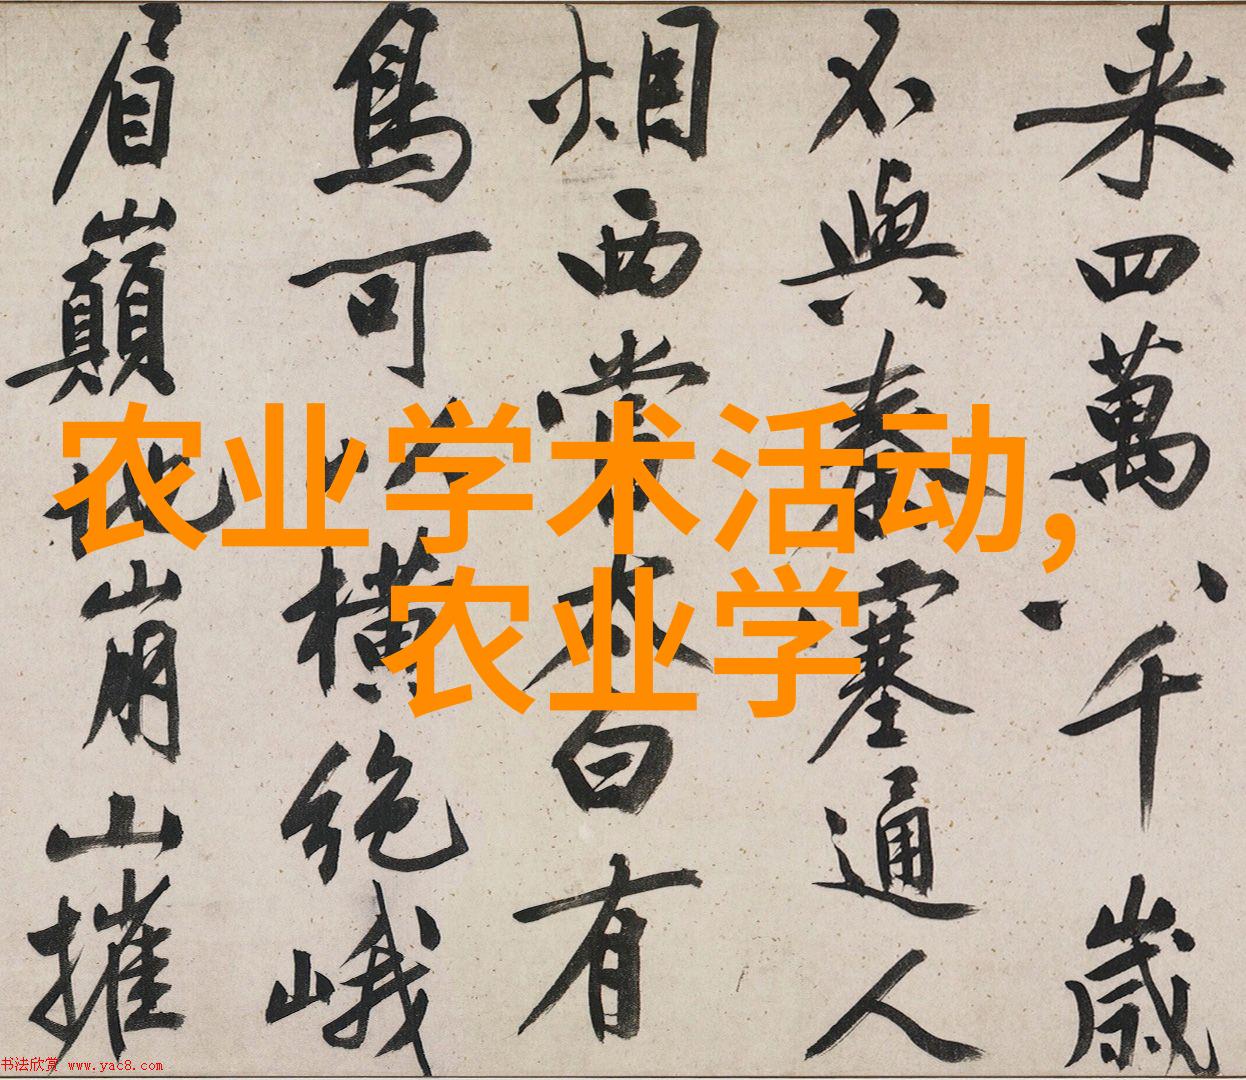 来四萬八千歲
不與秦塞通人
烟西當太白有
鳥可以橫絕峨
眉巔地崩山摧
农业学术活动，
农业学
书法欣赏 www.yac8.com